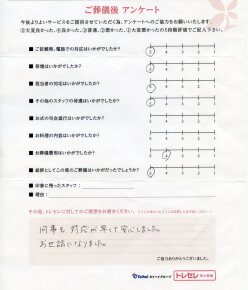 ご葬儀後 アンケート
今後よりよいサービスをご提供させていただく為、アンケートへのご協力をお願いいたします。
⑤大変良かった、④良かった、③普通、②悪かった、①大変悪かったの5段階評価でご記入下さい。
■ご依頼時、電話での対応はいかがでしたか?
5 4 3 2 1
■祭壇はいかがでしたか?
5 4 3 2 1
■担当者の対応はいかがでしたか?
5 4 3 2 1
■その他のスタッフの接遇はいかがでしたか?
5 4 3 2 1
■お式の司会進行はいかがでしたか?
5 4 3 2 1
■お料理の内容はいかがでしたか?
5 4 3 2 1
■お葬儀費用はいかがでしたか?
5 4 3 2 1
■総評としてこの度のご葬儀はいかがだったでしょうか?
5 4 3 2 1
■印象に残ったスタッフ:
■理由:
その他、トレセレに対してのご感想をお書きください。
何事も対応が早くて安心しました。
お世話になりました。
ご協力ありがとうございました。
Taihei トレセレ